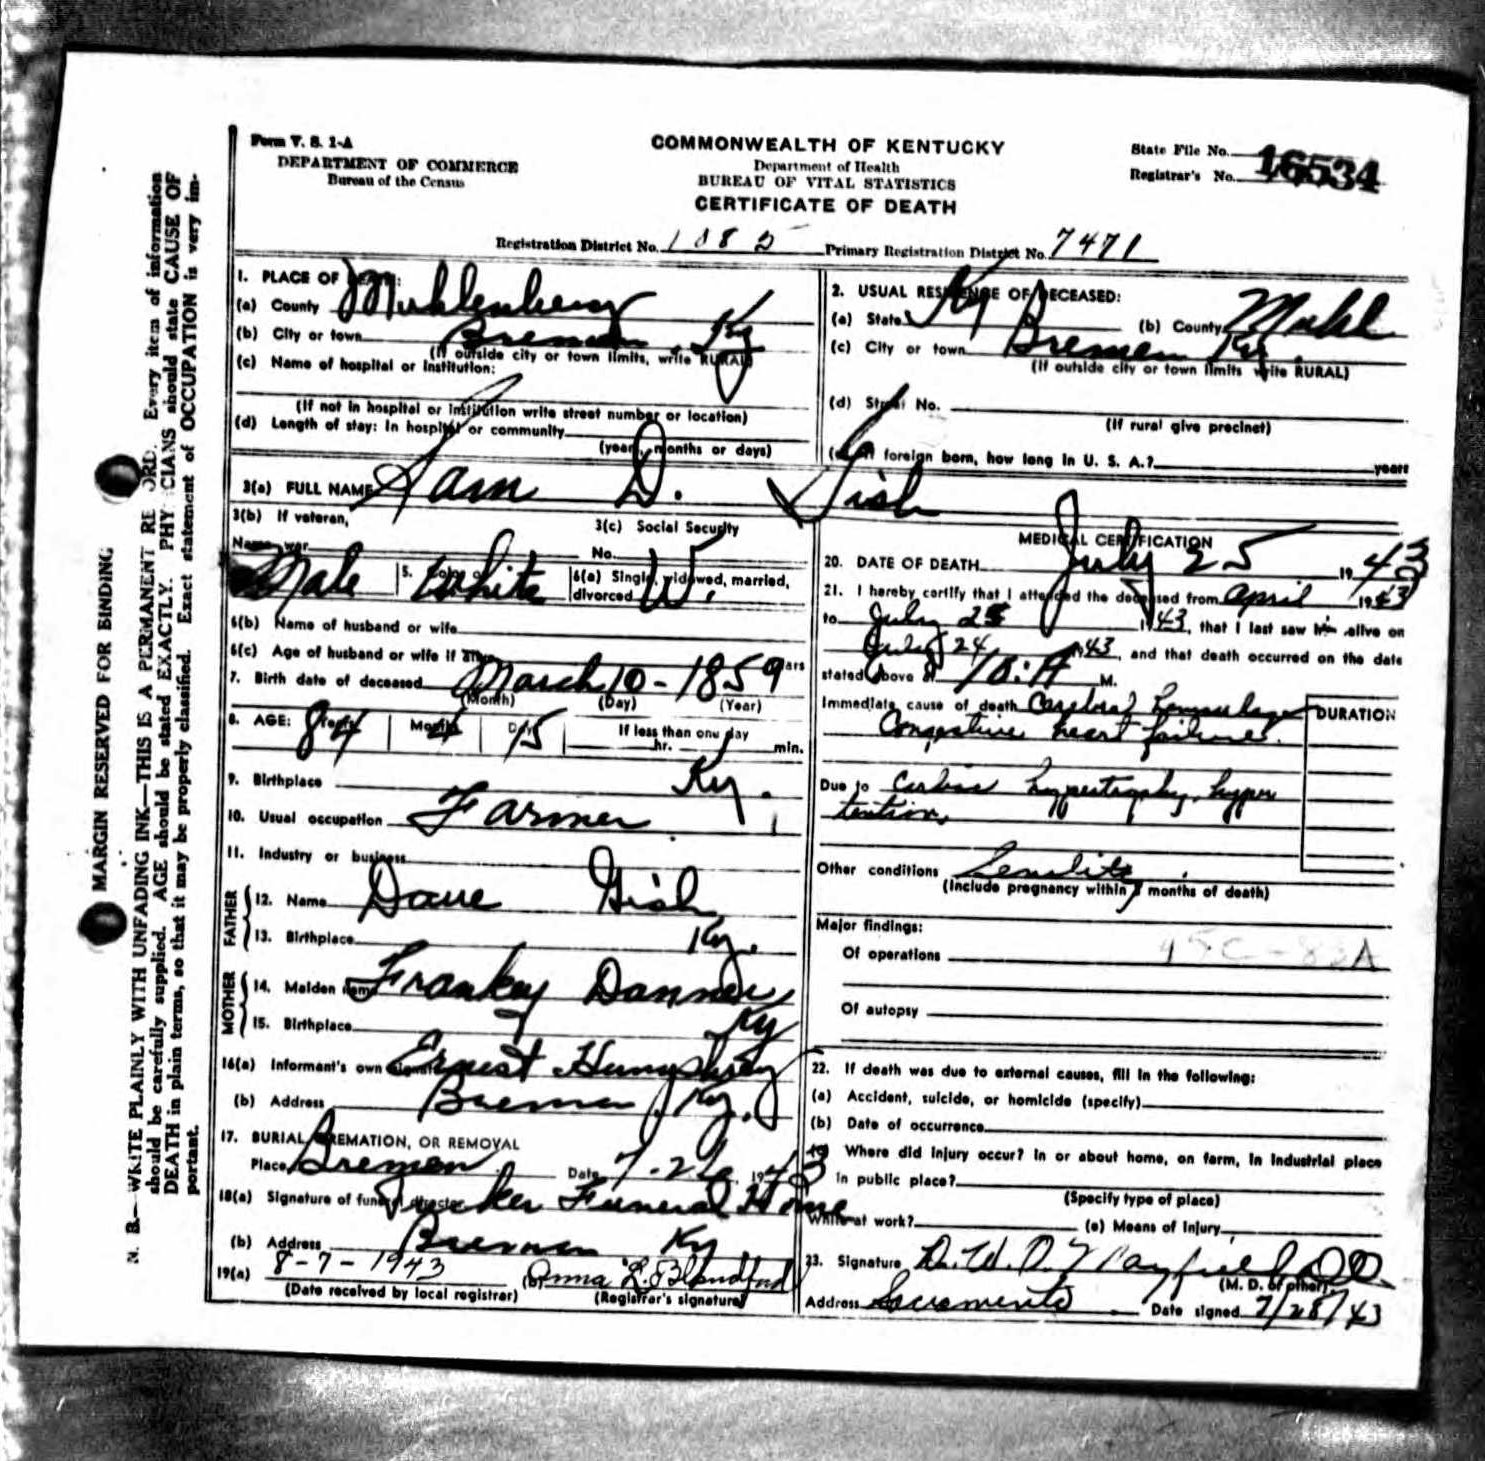 Form V. S. 1-A
DEPARTMENT OF COMMERCE
Bureau of the Census
COMMONWEALTH OF KENTUCKY
Department of Health
BUREAU OF VITAL STATISTICS
CERTIFICATE OF DEATH
State File No. 16534
Registrar's No.
Registration District No. 1085 Primary Registration District No. 7471
1. PLACE OF
(a) County Muhlenberg
(b) City or town Bremen, Ky
(If outside city or town limits, write RURAL)
(c) Name of hospital or institution:
(If not in hospital or institution write street number or location)
(d) Length of stay: In hospital or community
(years, months or days)
2. USUAL RESIDENCE OF DECEASED:
(a) State Ky (b) County Muhl
(c) City or town Bremen Ky.
(If outside city or town limits write RURAL)
(d) Street No.
(If rural give precinct)
(e) If foreign born, how long in U. S. A.? years
3(a) FULL NAME Sam D. Gish
3(b) If veteran,
Name war
3(c) Social Security
No.
Male 5. White 6(a) Single, widowed, married,
divorced W.
6(b) Name of husband or wife
6(c) Age of husband or wife if alive years
7. Birth date of deceased March 10-1859
(Month) (Day) (Year)
8. AGE: Years 84 Months 4 Days 15 If less than one day
hr. min.
9. Birthplace Ky.
10. Usual occupation Farmer
11. Industry or business
FATHER
12. Name Dave Gish
13. Birthplace Ky.
MOTHER
14. Maiden name Frankey Danner
15. Birthplace Ky
16(a) Informant's own signature Ernest Humphrey
(b) Address Bremen, Ky.
17. BURIAL, CREMATION, OR REMOVAL
Place Bremen Date 7-26 1943
18(a) Signature of funeral director Tucker Funeral Home
(b) Address Bremen Ky
19(a) 8-7-1943 (b) Anna L. Blandford
(Date received by local registrar) (Registrar's signature)
MEDICAL CERTIFICATION
20. DATE OF DEATH July 25 1943
21. I hereby certify that I attended the deceased from April 1943
to July 25 1943, that I last saw him alive on
July 24 1943, and that death occurred on the date
stated above at 10:A M.
Immediate cause of death Cerebral hemorrhage
Congestive heart failure.
DURATION
Due to Cardiac hypertrophy, hyper
tention,
Other conditions Senility
(Include pregnancy within 3 months of death)
Major findings:
Of operations
Of autopsy
22. If death was due to external causes, fill in the following:
(a) Accident, suicide, or homicide (specify)
(b) Date of occurrence
(c) Where did injury occur? In or about home, on farm, in industrial place
in public place?
(Specify type of place)
While at work? (e) Means of Injury
23. Signature Dr. W. D. Mayfield
(M. D. or other)
Address Sacramento Date signed 7/28/43
MARGIN RESERVED FOR BINDING
N. B.—WRITE PLAINLY WITH UNFADING INK—THIS IS A PERMANENT RECORD. Every item of information
should be carefully supplied. AGE should be stated EXACTLY. PHYSICIANS should state CAUSE OF
DEATH in plain terms, so that it may be properly classified. Exact statement of OCCUPATION is very im-
portant.